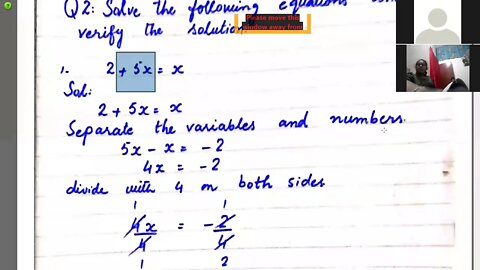 Q2: Solve the following equations
verify the solution
Please move this
window away from
1. 2 + 5x = x
Sol:
2 + 5x = x
Separate the variables and numbers.
5x - x = -2
4x = -2
divide with 4 on both sides
1 1
4x/4 = -2/4
1 2